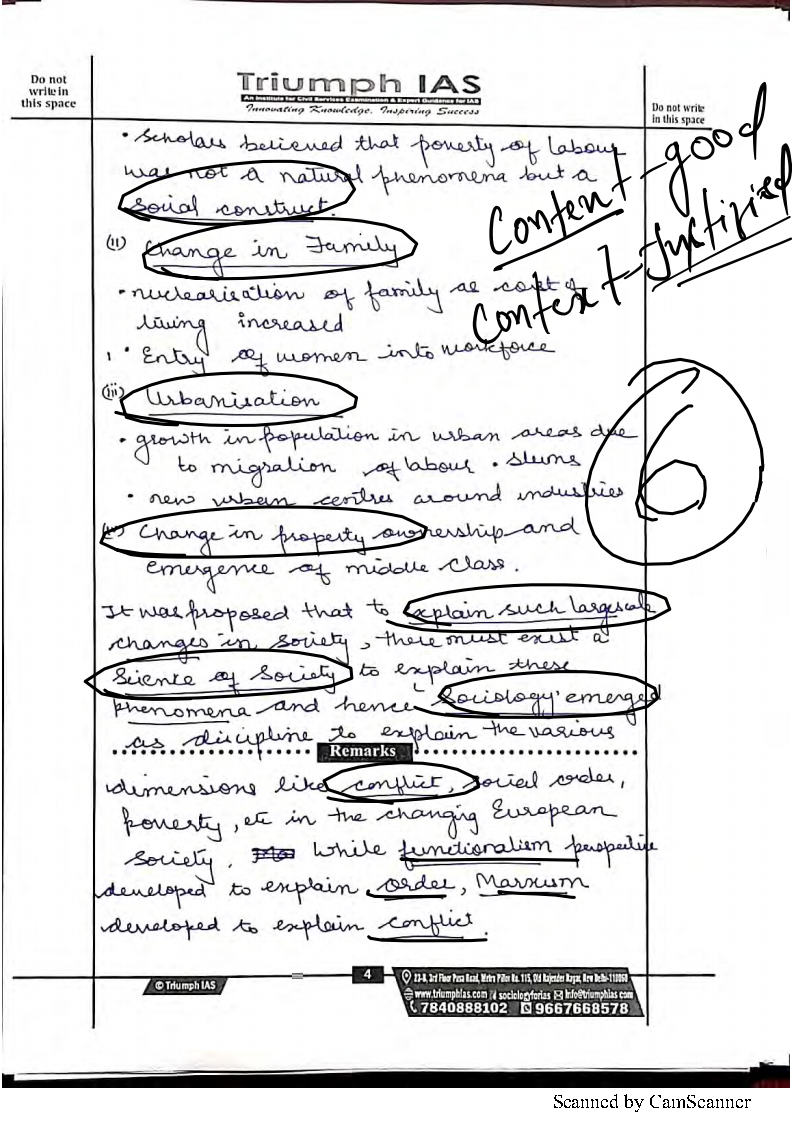 Do not
write in
this space
Triumph IAS
An Institute for Civil Services Examination & Expert Guidance for IAS
Innovating Knowledge, Inspiring Success
Do not write
in this space
• Scholars believed that poverty of labour
was not a natural phenomena but a
social construct.
Content - good
Context - Justified
(ii) Change in Family
• nuclearisation of family as cost of
living increased
• Entry of women into workforce
(iii) Urbanisation
• growth in population in urban areas due
to migration of labour • slums
• new urban centres around industries
6
Change in property ownership and
emergence of middle class.
It was proposed that to explain such largescale
changes in society, there must exist a
Science of Society to explain these
phenomena and hence 'Sociology' emerged
as discipline to explain the various
Remarks
dimensions like conflict, social order,
poverty, etc in the changing European
society. While functionalism perspective
developed to explain order, Marxism
developed to explain conflict.
© Triumph IAS
4
23-B, 3rd Floor Pusa Road, Metro Pillar No. 115, Old Rajender Nagar, New Delhi-110060
www.triumphias.com sociologyforias info@triumphias.com
7840888102 9667668578
Scanned by CamScanner